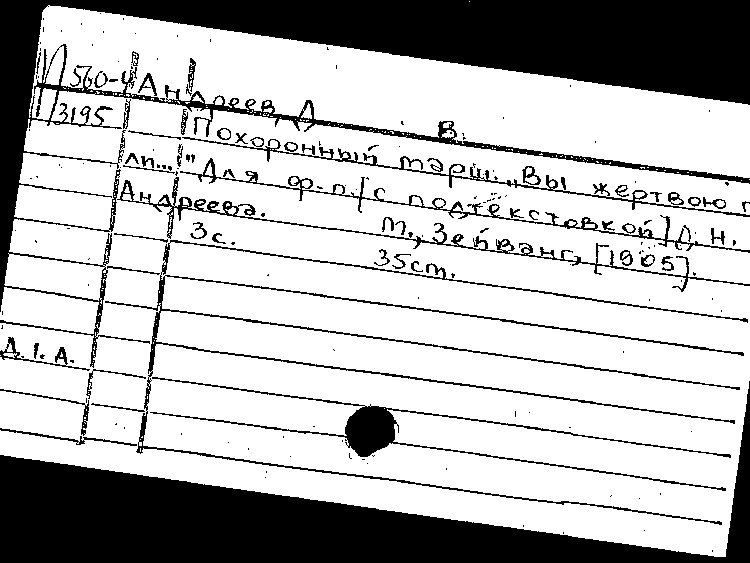 П 560-4 Андреев, Д
3195 В.
Похоронный марш. „Вы жертвою п
ли..." Для ф-п. [с подтекстовкой] Д. Н.
Андреева. М., Зейванг, [1905].
3с. 35ст.
Д. І. А.